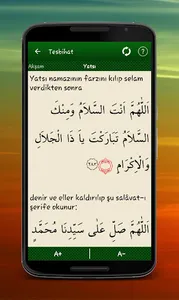 Tesbihat
Akşam Yatsı
Yatsı namazının farzını kılıp selam
verdikten sonra
اَللّٰهُمَّ اَنْتَ السَّلَامُ وَمِنْكَ
السَّلَامُ تَبَارَكْتَ يَا ذَا الْجَلَالِ
وَالْاِكْرَامِ
denir ve eller kaldırılıp şu salâvat-ı
şerife okunur:
اَللّٰهُمَّ صَلِّ عَلٰى سَيِّدِنَا مُحَمَّدٍ
A+ A-